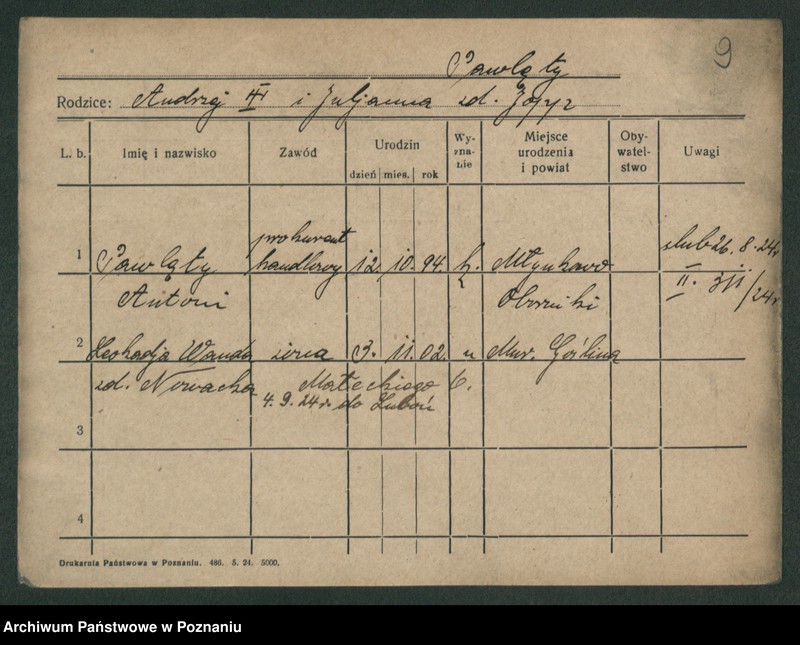 9
Pawlęty
Rodzice: Andrzej i Juljanna zd.
L. b. Imię i nazwisko Zawód Urodzin dzień mies. rok Wy-zna-nie Miejsce urodzenia i powiat Oby-watel-stwo Uwagi
prokurent ślub 26. 8. 24r
1 Pawlęty handlowy 12. 10. 94. k. Młynkowo II. 311/24r
Antoni Oborniki
2 Leokadja Wanda żona 3. 11. 02. " Mur. Goślina
zd. Nowacka Małeckiego 6.
4. 9. 24r. do Luboń
3
4
Drukarnia Państwowa w Poznaniu. 486. 5. 24. 5000.
Archiwum Państwowe w Poznaniu